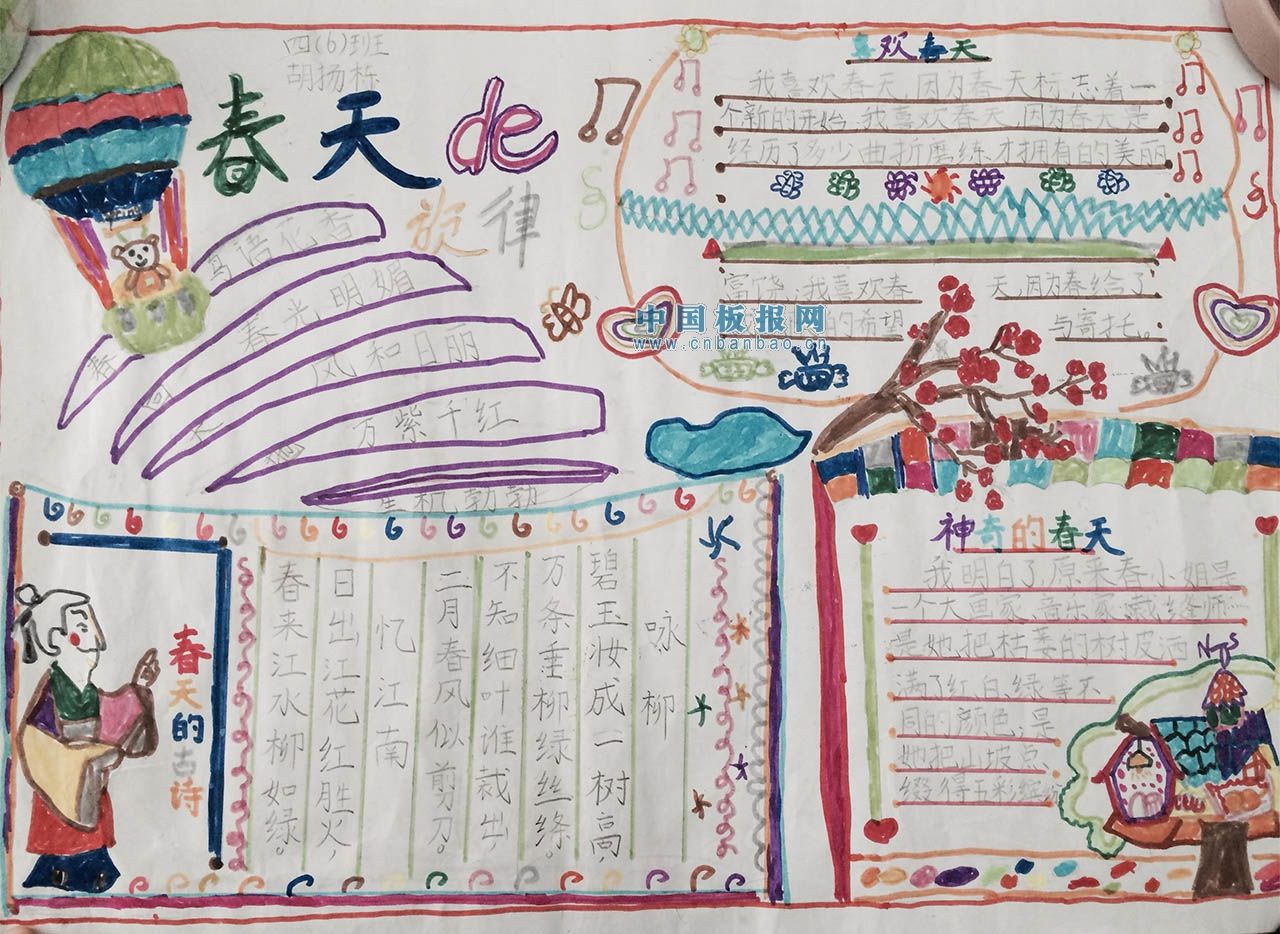 四(6)班
胡扬栋
春天de
旋律
鸟语花香
春光明媚
风和日丽
万紫千红
生机勃勃
春
回
大
地
喜欢春天
我喜欢春天,因为春天标志着一
个新的开始。我喜欢春天,因为春天是
经历了多少曲折磨练,才拥有的美丽
富饶,我喜欢春 天,因为春给了
的希望 与寄托。
中国板报网
www.cnbanbao.cn
春天的古诗
咏柳
碧玉妆成一树高,
万条垂柳绿丝绦。
不知细叶谁裁出,
二月春风似剪刀。
忆江南
日出江花红胜火,
春来江水柳如绿。
神奇的春天
我明白了,原来春小姐是
一个大画家、音乐家、裁缝师…
是她把枯萎的树皮洒
满了红、白、绿等不
同的颜色;是
她把山坡点
缀得五彩缤纷